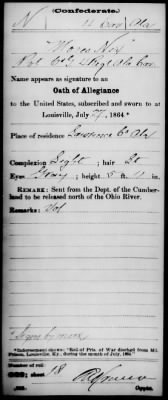 (Confederate.)
N 4 Cav Ala
Nix
Pvt Co G 4 Regt Ala Cav
Name appears as signature to an
Oath of Allegiance
to the United States, subscribed and sworn to at
Louisville, July 27, 1864*
Place of residence Lawrence Co Ala
Complexion Light ; hair Lt
Eyes Grey ; height 5 ft. 11 in.
REMARK: Sent from the Dept. of the Cumber-
land to be released north of the Ohio River.
Remarks: Vol
Signs by mark
*Indorsement shows: "Roll of Pris. of War discharged from Mil.
Prison, Louisville, Ky., during the month of July, 1864."
Number of roll:
sheet 18